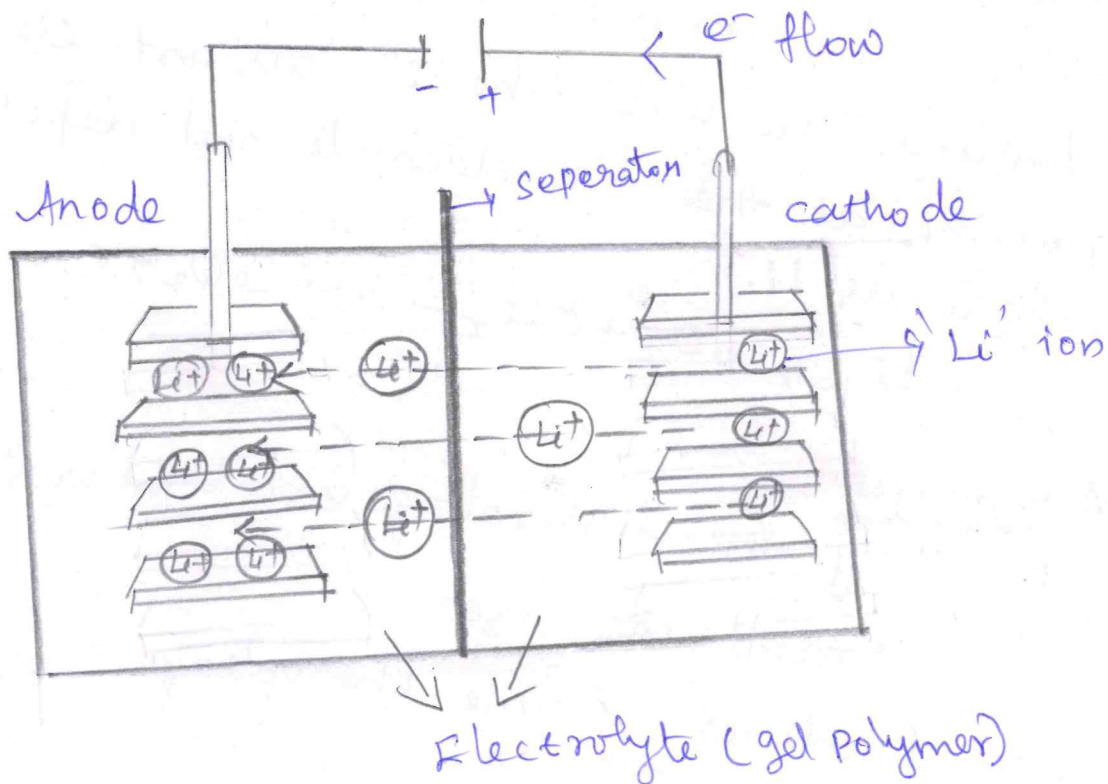 e⁻ flow
- +
seperator
Anode
cathode
Li⁺ Li⁺ Li⁺ Li⁺
'Li' ion
Li⁺ Li⁺
Li⁺ Li⁺
Li⁺ Li⁺
Li⁺ Li⁺
Electrolyte (gel polymer)